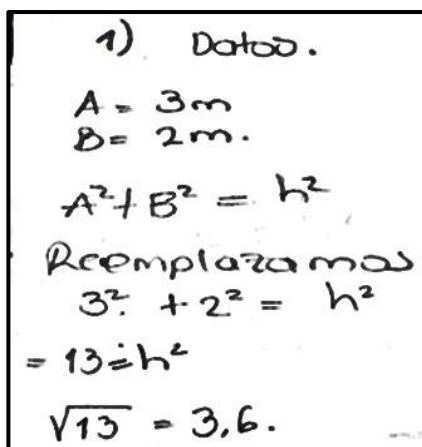 1) Datos.
A = 3m
B = 2m.
A² + B² = h²
Reemplazamos
3² + 2² = h²
= 13 = h²
√13 = 3,6.